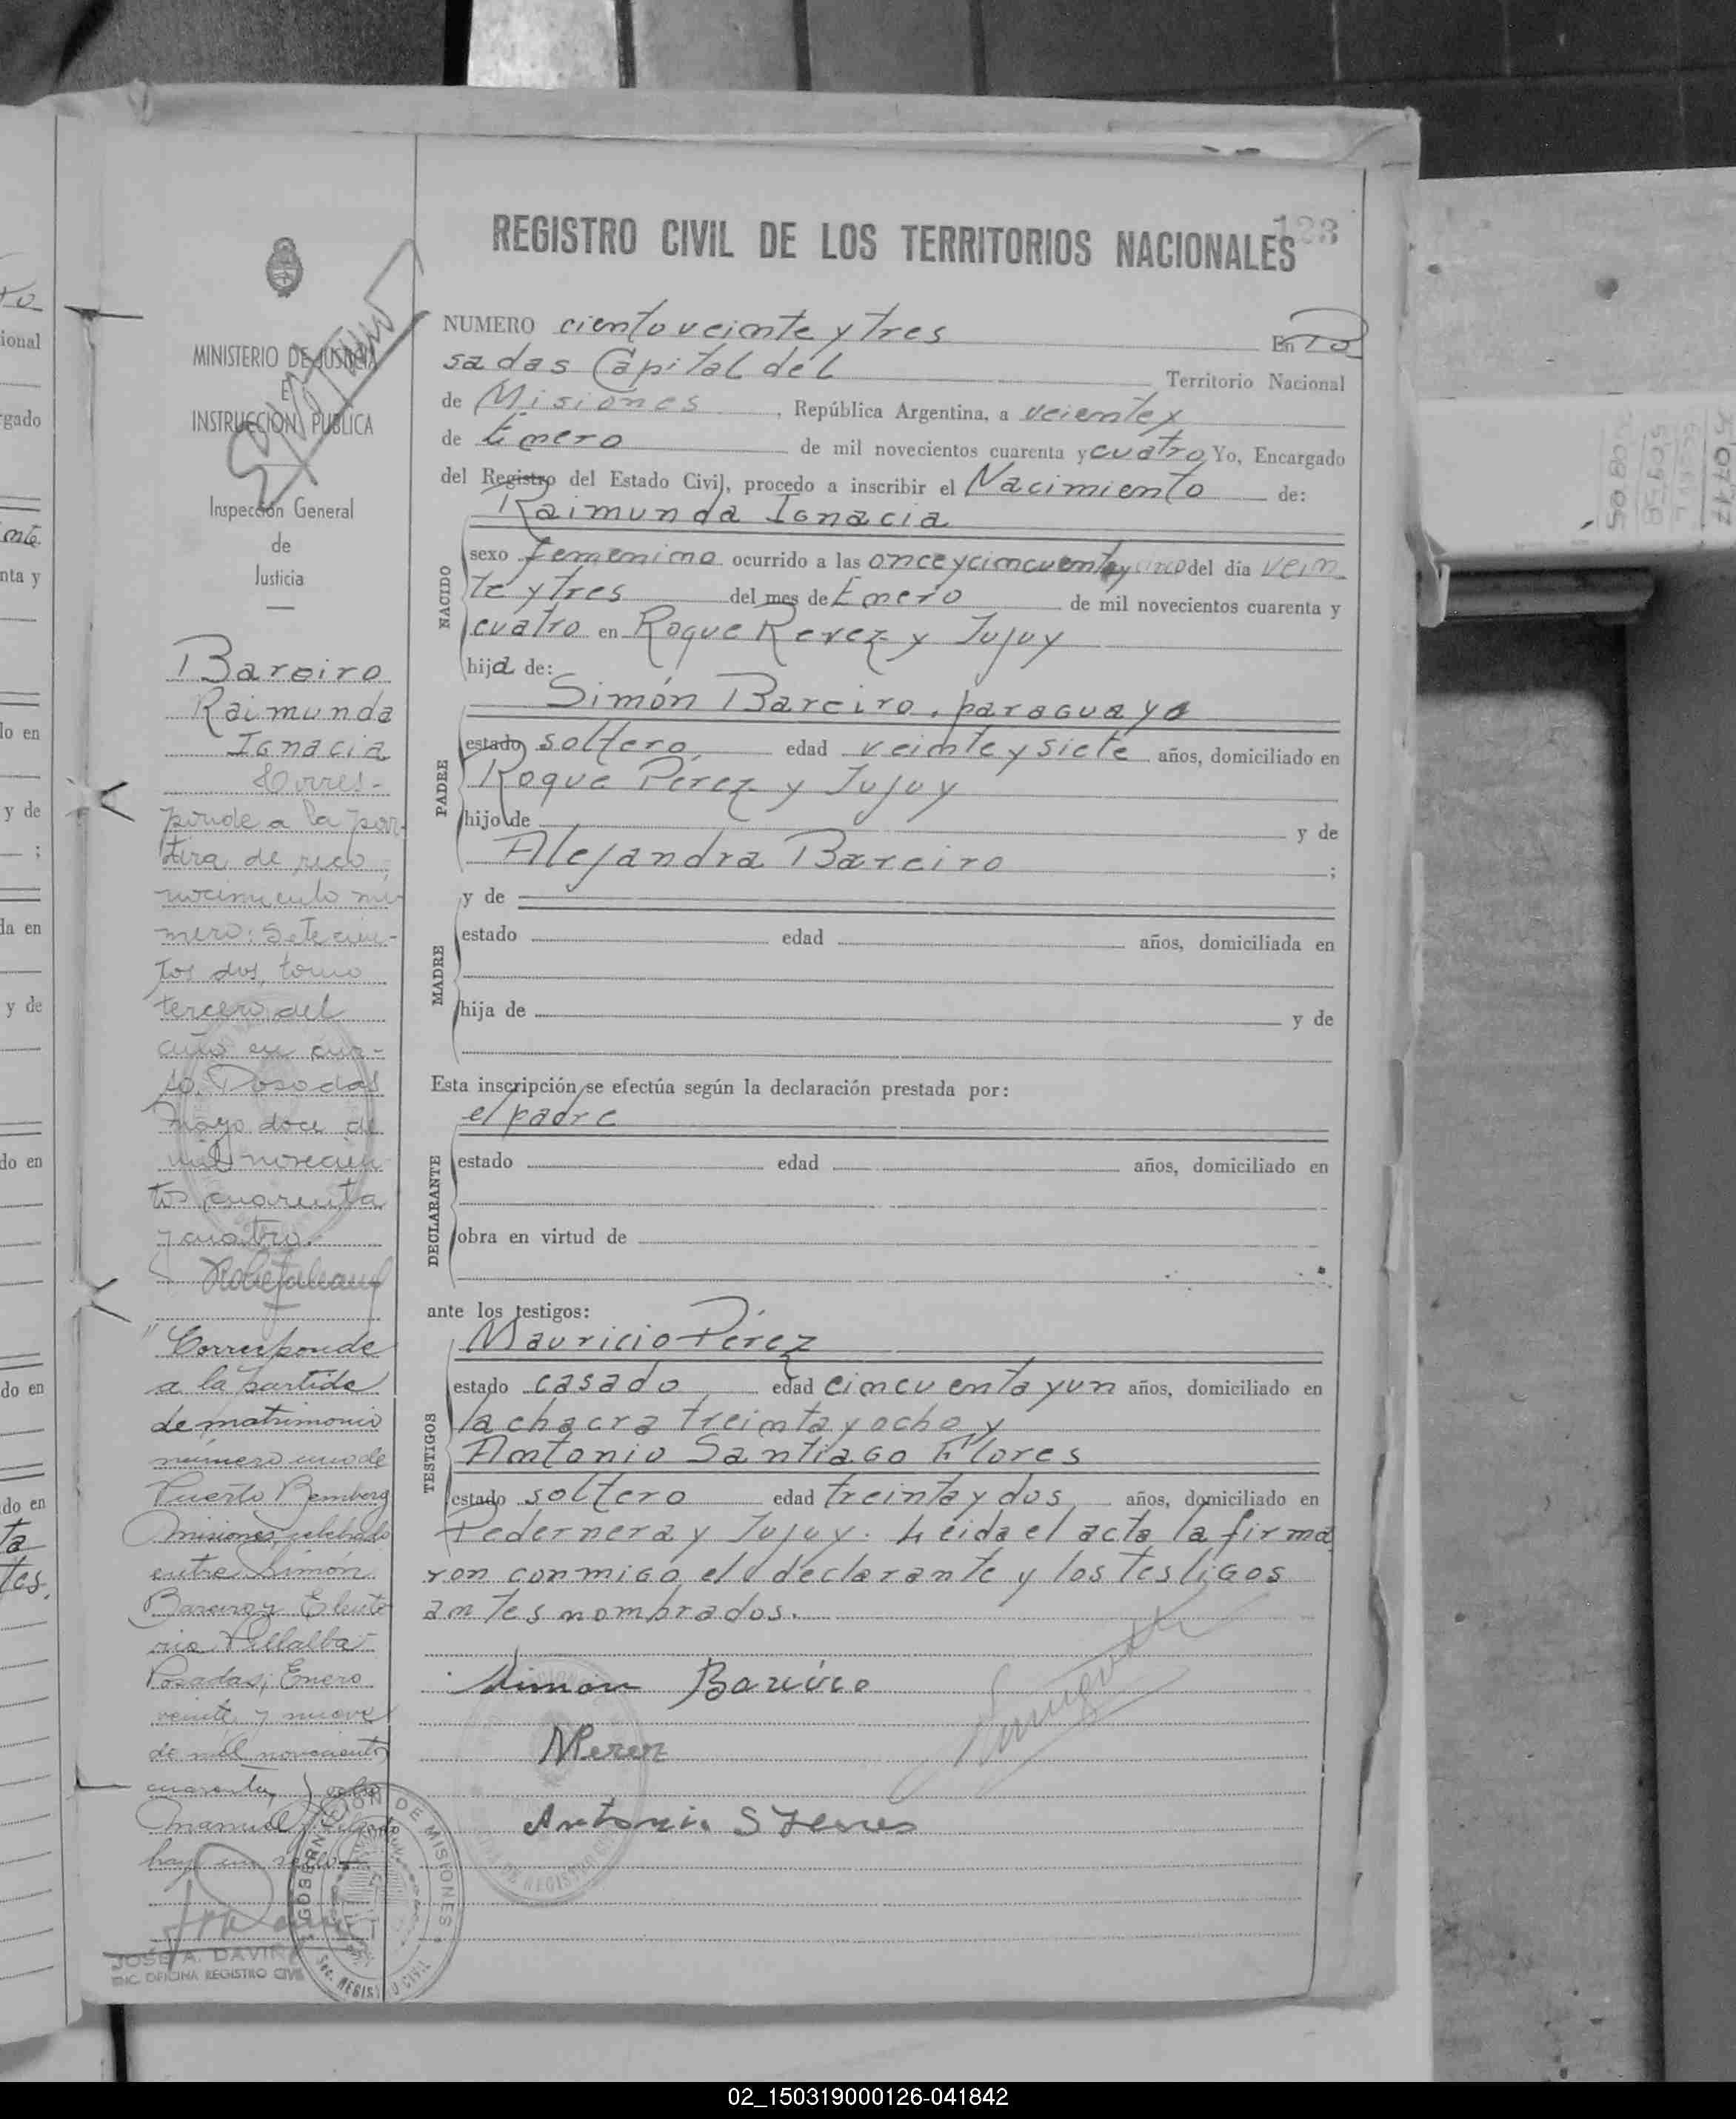 REGISTRO CIVIL DE LOS TERRITORIOS NACIONALES
123
MINISTERIO DE JUSTICIA
E
INSTRUCCION PUBLICA
Inspección General
de
Justicia
Bareiro
Raimunda
Ignacia
Corres-
ponde a la par-
tida de reco
nocimiento nú-
mero: Setecien-
tos dos, tomo
tercero del
año en cur-
so. Posadas
mayo doce de
mil novecien
tos cuarenta
y cuatro.
"Corresponde
a la partida
de matrimonio
número uno de
Puerto Bemberg
Misiones, celebrado
entre Simón
Bareiro y Eleute
ria Villalba
Posadas, Enero
veinte y nueve
de mil novecientos
cuarenta y ocho
Manuel
hay un sello
JOSE A. DAVIÑA
ENC. OFICINA REGISTRO CIVIL
GOBERNACION DE MISIONES
Sec. REGISTRO CIVIL
NUMERO ciento veinte y tres En Po
sadas Capital del Territorio Nacional
de Misiones, República Argentina, a veiente y
de Enero de mil novecientos cuarenta y cuatro Yo, Encargado
del Registro del Estado Civil, procedo a inscribir el Nacimiento de:
NACIDO
Raimunda Ignacia
sexo femenino ocurrido a las once y cincuenta y cinco del día vein
te y tres del mes de Enero de mil novecientos cuarenta y
cuatro en Roque Perez y Jujuy
hija de:
PADRE
Simón Bareiro, paraguayo
estado soltero edad veinte y siete años, domiciliado en
Roque Pérez y Jujuy
hijo de y de
Alejandra Bareiro ;
MADRE
y de
estado edad años, domiciliada en
hija de y de
Esta inscripción se efectúa según la declaración prestada por:
DECLARANTE
el padre
estado edad años, domiciliado en
obra en virtud de
ante los testigos:
TESTIGOS
Mauricio Pérez
estado casado edad cincuenta y un años, domiciliado en
la chacra treinta y ocho y
Antonio Santiago Flores
estado soltero edad treinta y dos años, domiciliado en
Pedernera y Jujuy. Leida el acta la firma
ron conmigo el declarante y los testigos
antes nombrados.
Simon Bareiro
MPerez
Antonio S Flores
02_150319000126-041842